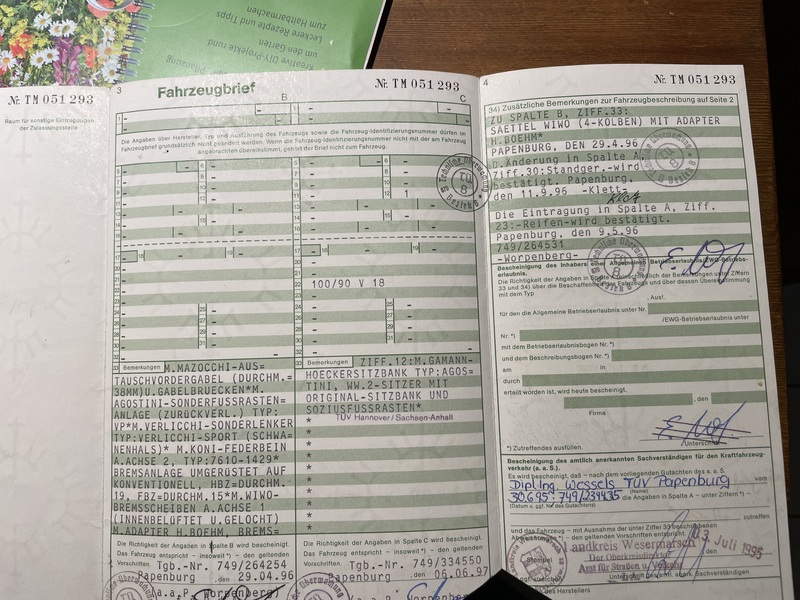 Leckere Rezepte und Tipps
zum Haltbarmachen
Kreative DIY-Projekte rund
um den Garten
Nr. TM 051 293
Raum für sonstige Eintragungen
der Zulassungsstelle
3
Fahrzeugbrief
Nr. TM 051 293
B
C
Die Angaben über Hersteller, Typ und Ausführung des Fahrzeugs sowie die Fahrzeug-Identifizierungsnummer dürfen im
Fahrzeugbrief grundsätzlich nicht geändert werden. Wenn die Fahrzeug-Identifizierungsnummer nicht mit der am Fahrzeug
angebrachten übereinstimmt, gehört der Brief nicht zum Fahrzeug.
100/90 V 18
Bemerkungen
M.MAZOCCHI-AUS=
TAUSCHVORDERGABEL (DURCHM.=
38MM)U.GABELBRUECKEN*M.
AGOSTINI-SONDERFUSSRASTEN=
ANLAGE (ZURÜCKVERL.) TYP:
VP*M.VERLICCHI-SONDERLENKER
TYP:VERLICCHI-SPORT (SCHWA=
NENHALS)* M.KONI-FEDERBEIN
A.ACHSE 2, TYP:7610-1429*
BREMSANLAGE UMGERÜSTET AUF
KONVENTIONELL, HBZ=DURCHM.
19, FBZ=DURCHM.15*M.WIWO-
BREMSSCHEIBEN A.ACHSE 1
(INNENBELÜFTET U.GELOCHT)
M.ADAPTER H.BOEHM, BREMS=
Die Richtigkeit der Angaben in Spalte B wird bescheinigt.
Das Fahrzeug entspricht - insoweit*) - den geltenden
Vorschriften. Tgb.-Nr. 749/264254
Papenburg , den 29.04.96
Bemerkungen
ZIFF.12:M.GAMANN-
HOECKERSITZBANK TYP:AGOS=
TINI, WW.2-SITZER MIT
ORIGINAL-SITZBANK UND
SOZIUSFUSSRASTEN*
TÜV Hannover/Sachsen-Anhalt
Die Richtigkeit der Angaben in Spalte C wird bescheinigt.
Das Fahrzeug entspricht - insoweit*) - den geltenden
Vorschriften. Tgb.-Nr. 749/334550
Papenburg , den 06.06.97
4
Nr. TM 051 293
34) Zusätzliche Bemerkungen zur Fahrzeugbeschreibung auf Seite 2
ZU SPALTE B, ZIFF.33:
SAETTEL WIWO (4-KOLBEN) MIT ADAPTER
H.BOEHM*
PAPENBURG, DEN 29.4.96
D.Änderung in Spalte A,
Ziff.30:Standger.-wird
bestätigt. Papenburg,
den 11.9.96 -Klett-
Die Eintragung in Spalte A, Ziff.
23:-Reifen-wird bestätigt.
Papenburg, den 9.5.96
749/264531
-Worpenberg-
Bescheinigung des Inhabers einer Allgemeinen Betriebserlaubnis/EWG-Betriebs-
erlaubnis.
Die Richtigkeit der Angaben
mit dem Typ
, Ausf.
für den die Allgemeine Betriebserlaubnis unter Nr.
/EWG-Betriebserlaubnis unter
Nr. *)
mit dem Betriebserlaubnisbogen Nr. *)
und dem Beschreibungsbogen Nr. *)
am in
durch
erteilt worden ist, wird heute bescheinigt.
, den
Firma
Unterschrift
*) Zutreffendes ausfüllen.
Bescheinigung des amtlich anerkannten Sachverständigen für den Kraftfahrzeug-
verkehr (a. a. S.).
Es wird bescheinigt, daß - nach dem vorliegenden Gutachten des a. a. S.
Dipl.Ing. Wessels TÜV Papenburg
vom
(Name)
30.6.95 749/234435
die Angaben in Spalte A - unter Ziffern *) -
zutreffen
und das Fahrzeug - mit Ausnahme der unter Ziffer 33 beschriebenen
13. Juli 1995
Landkreis Wesermarsch
Der Oberkreisdirektor
Amt für Straßen u. Verkehr
Stempel